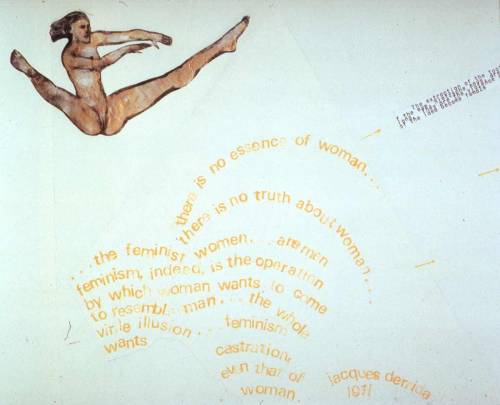 there is no essence of woman. . .
there is no truth about woman. . .
. . .the feminist women. . .are men
feminism, indeed, is the operation
by which woman wants to come
to resemble man. . . the whole
virile illusion. . . feminism
wants
castration,
even that of
woman
jacques derrida
The extraction of the